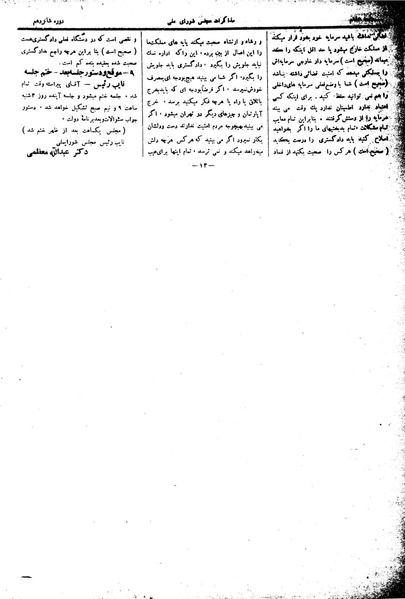 مذاکرات مجلس شورای ملی
دوره شانزدهم
باشد سرمایه خود بخود فرار میکند
از مملکت خارج میشود یا حد اقل اینکه را کد
میماند (صحیح است) یا سرمایه دار خارجی سرمایه‌اش را
بمملکتی میدهد که امنیت قضائی داشته باشد
(صحیح است) شما با وضع فعلی سرمایه‌های داخلی
را هم نمی توانید حفظ کنید . برای اینکه کسی
اعتماد ندارد اطمینان ندارد یک وقت می بیند
سرمایه را از دستش گرفتند . بنابراین تمام معایب
تمام مشکلات تمام بدبختیهای ما را اگر بخواهید
اصلاح کنید باید دادگستری را درست بکنید
(صحیح است) هر کس را صحبت بکنید از فساد
و رشاء و ارتشاء صحبت میکند پایه های مملکت ما
را این اعمال از بین برده . اگر کسی که اداره تمام
نباید جلویش را بگیرد . دادگستری باید جلویش
را بگیرد . اگر شما می بینید هیچ بودجه‌ای بمصرف
خودش نمیرسد . اگر فرضاً بودجه ای که باید بخرج
باتلاق یا راه یا هرچه فکر میکنید برسد . خرج
آپارتمان و چیزهای دیگر در تهران میشود . اگر
می بینید بهیچوجه مردم امنیت ندارند دست و دلشان
بکار نمیرود اگر می بینید که هر کس هرچه دلش
میخواهد میکند و نمی ترسد . تمام اینها برای عیب
و نقصی است که در دستگاه فعلی دادگستری هست
(صحیح است) بنا بر این هرچه راجع بدادگستری
صحبت شده بعقیده بنده کم است .
۹ - موقع و دستور جلسه بعد - ختم جلسه
نایب رئیس - آقای پیراسته وقت تمام
شد . جلسه ختم میشود و جلسه آینده روز ۳ شنبه
ساعت ۹ و نیم صبح تشکیل خواهد شد . دستور
جواب سئوالات بعد برنامهٔ دولت .
(مجلس یکساعت بعد از ظهر ختم شد)
نایب رئیس مجلس شورایملی
دکتر عبدالله معظمی
- ۱۲ -